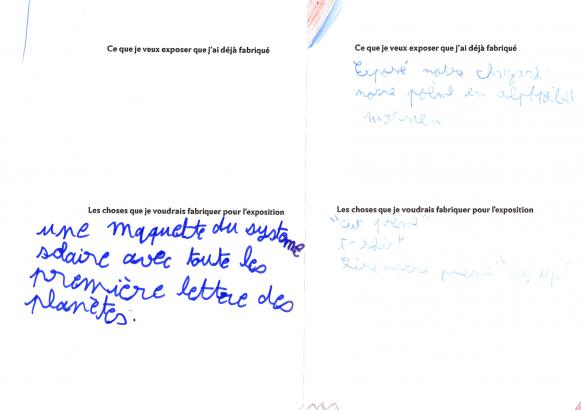 Ce que je veux exposer que j'ai déjà fabriqué
Les choses que je voudrais fabriquer pour l'exposition
une maquette du système
solaire avec toute les
première lettre des
planètes.
Ce que je veux exposer que j'ai déjà fabriqué
Exposé notre
notre poème en alphabet
martien
Les choses que je voudrais fabriquer pour l'exposition
t-shirt
Lire notre poème